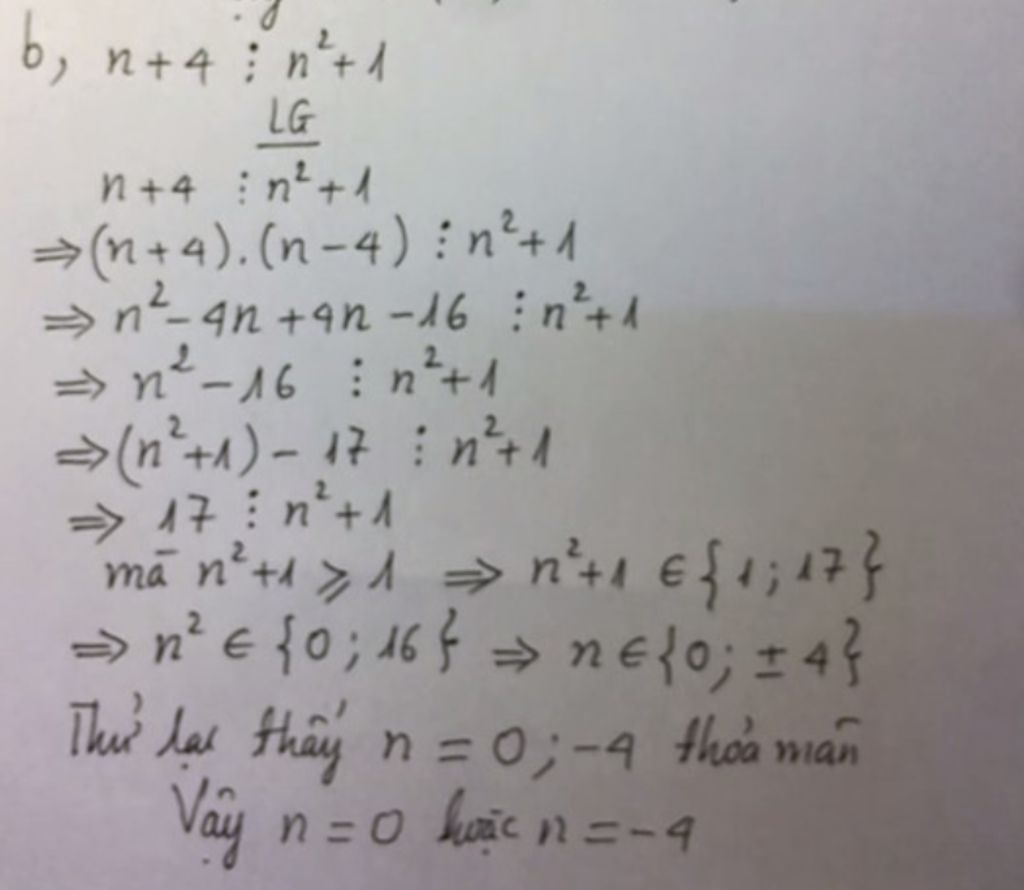 b, n+4 ⋮ n²+1
LG
n+4 ⋮ n²+1
⇒(n+4).(n-4) ⋮ n²+1
⇒ n²-4n+4n-16 ⋮ n²+1
⇒ n²-16 ⋮ n²+1
⇒(n²+1)- 17 ⋮ n²+1
⇒ 17 ⋮ n²+1
mà n²+1 ⩾ 1 ⇒ n²+1 ∈ {1; 17}
⇒ n² ∈ {0; 16} ⇒ n∈{0; ±4}
Thử lại thấy n = 0; -4 thỏa mãn
Vậy n = 0 hoặc n = -4